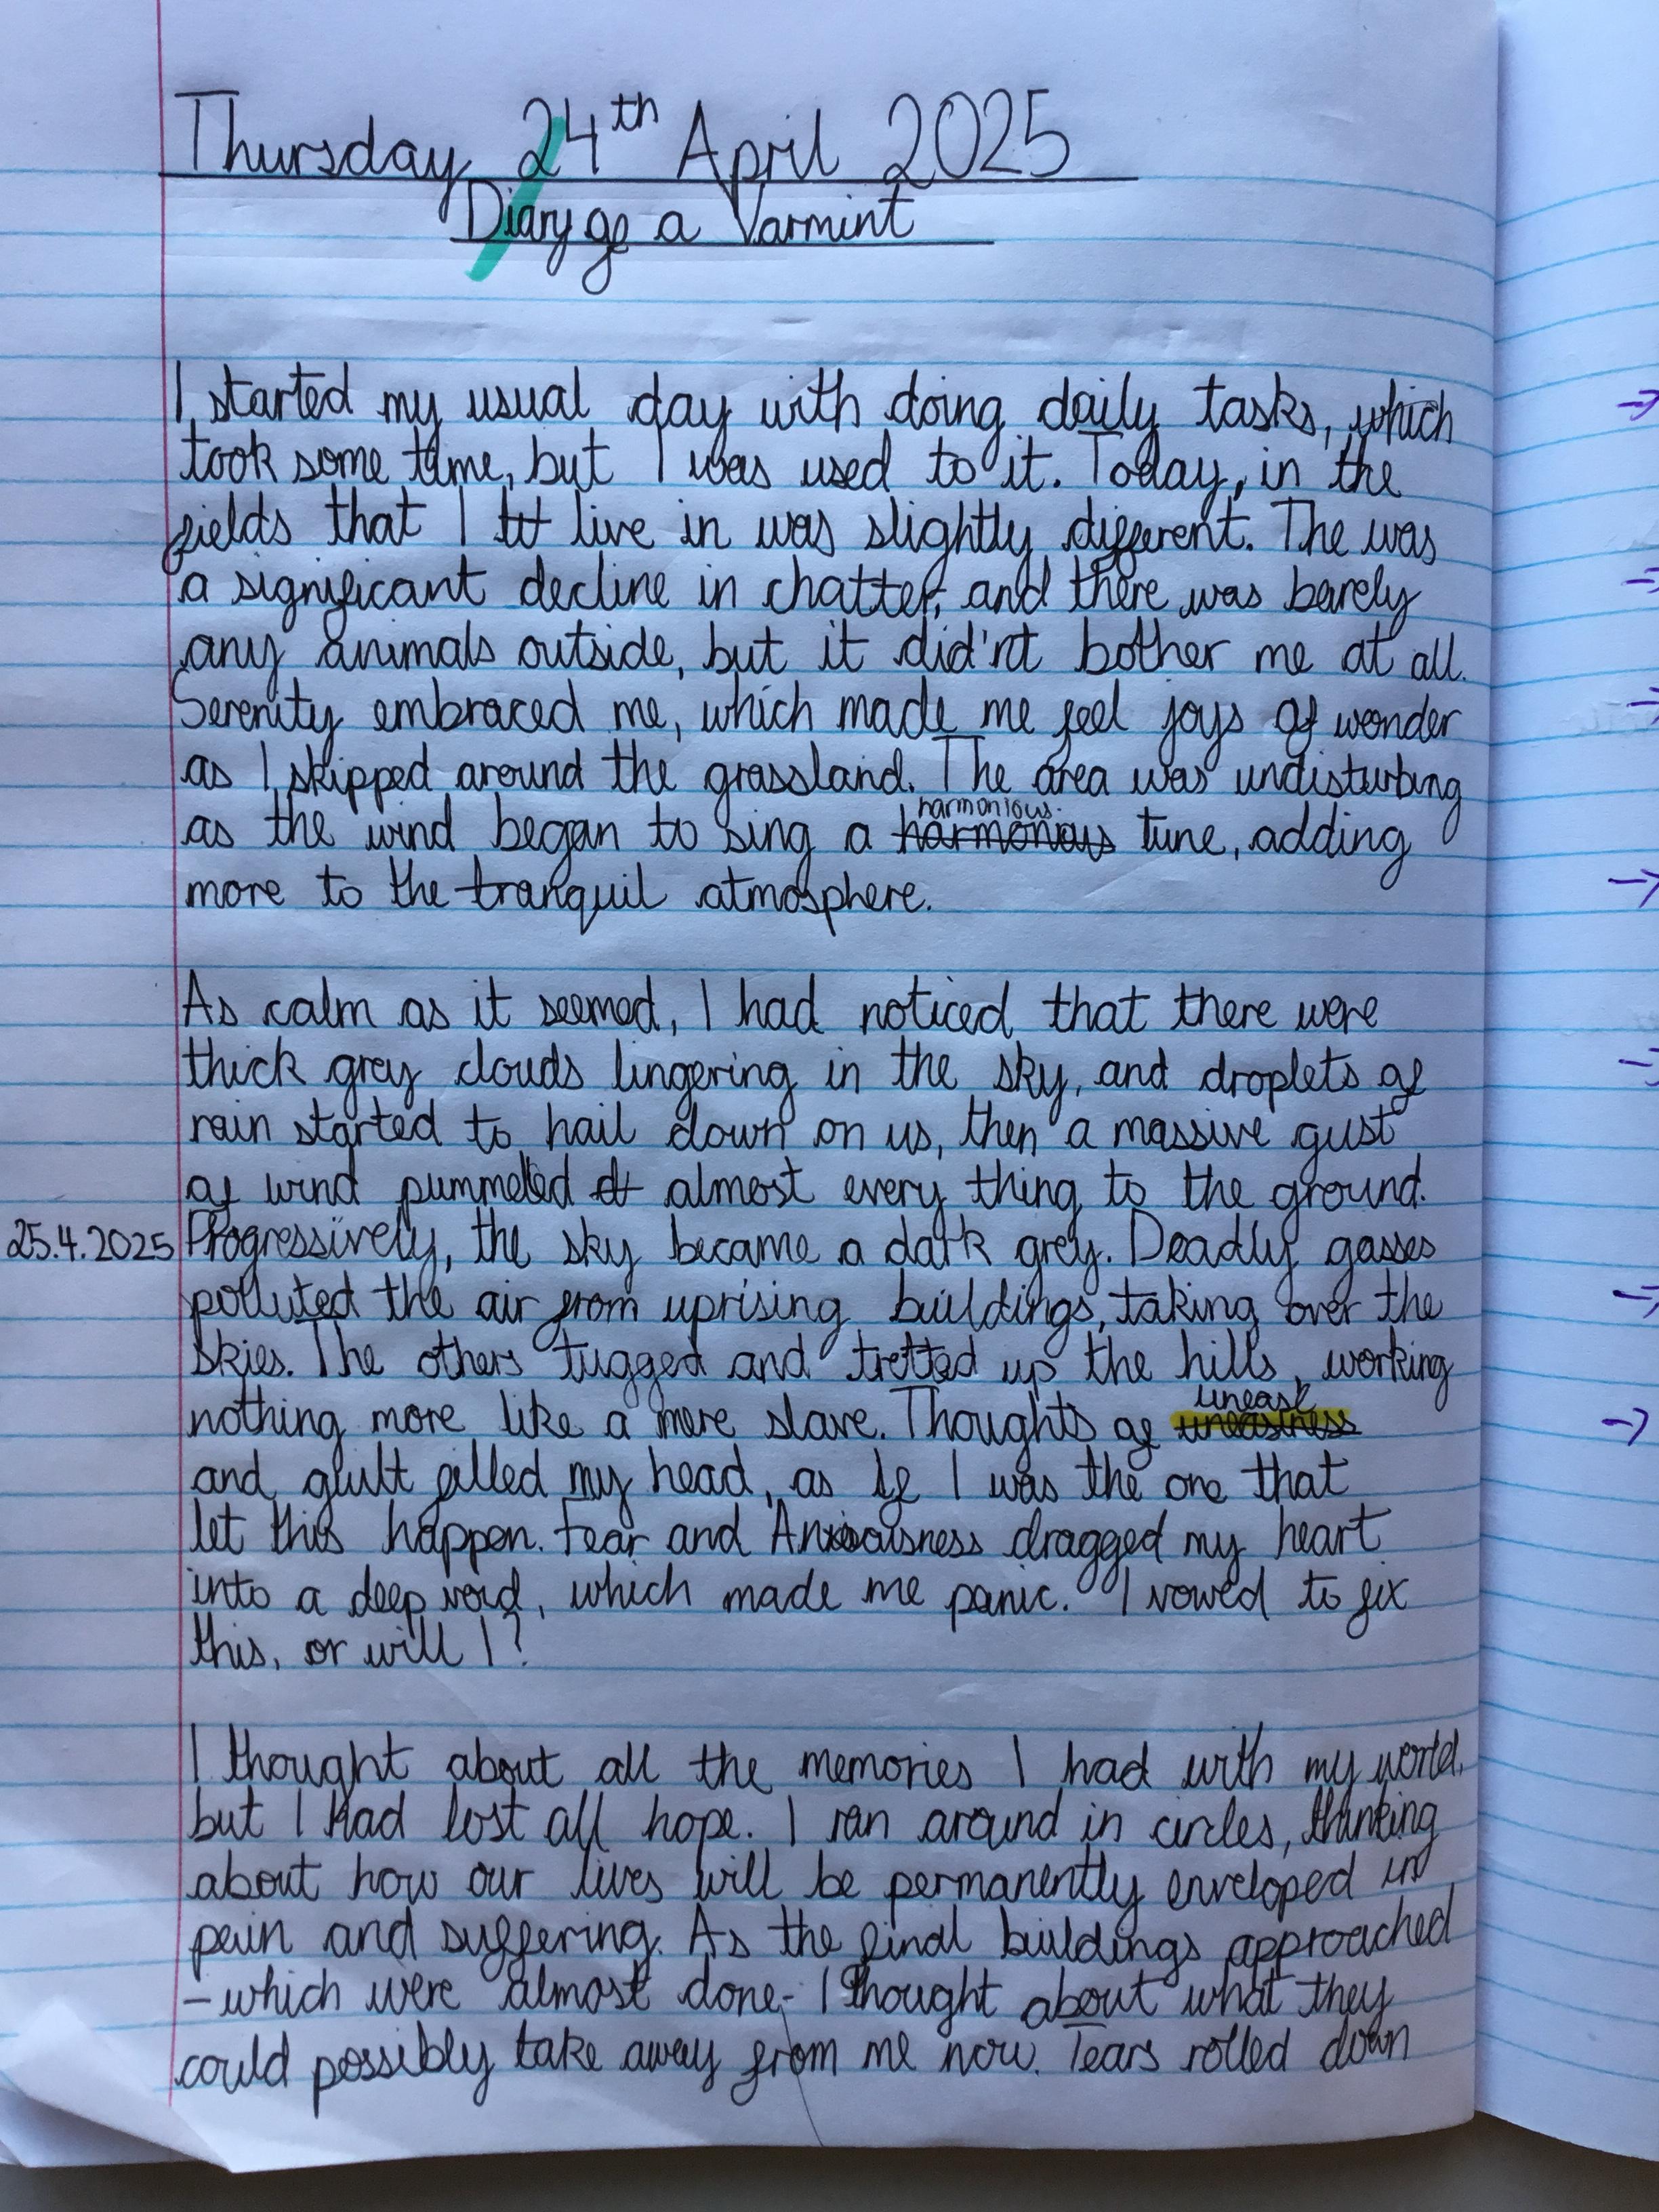 Thursday 24th April 2025
Diary of a Varmint
I started my usual day with doing daily tasks, which
took some time, but I was used to it. Today, in the
fields that I live in was slightly different. The was
a significant decline in chatter, and there was barely
any animals outside, but it did'nt bother me at all.
Serenity embraced me, which made me feel joys of wonder
as I skipped around the grassland. The area was undisturbing
harmonious
as the wind began to sing a harmonious tune, adding
more to the tranquil atmosphere.
As calm as it seemed, I had noticed that there were
thick grey clouds lingering in the sky, and droplets of
rain started to hail down on us, then a massive gust
of wind pummelled almost every thing to the ground.
25.4.2025 Progressively, the sky became a dark grey. Deadly gasses
polluted the air from uprising buildings, taking over the
skies. The others tugged and trotted up the hills, working
unease
nothing more like a mere slave. Thoughts of uneasiness
and guilt filled my head, as if I was the one that
let this happen. Fear and Anxiousness dragged my heart
into a deep void, which made me panic. I vowed to fix
this, or will I?
I thought about all the memories I had with my world,
but I had lost all hope. I ran around in circles, thinking
about how our lives will be permanently enveloped in
pain and suffering. As the final buildings approached
- which were almost done - I thought about what they
could possibly take away from me now. Tears rolled down